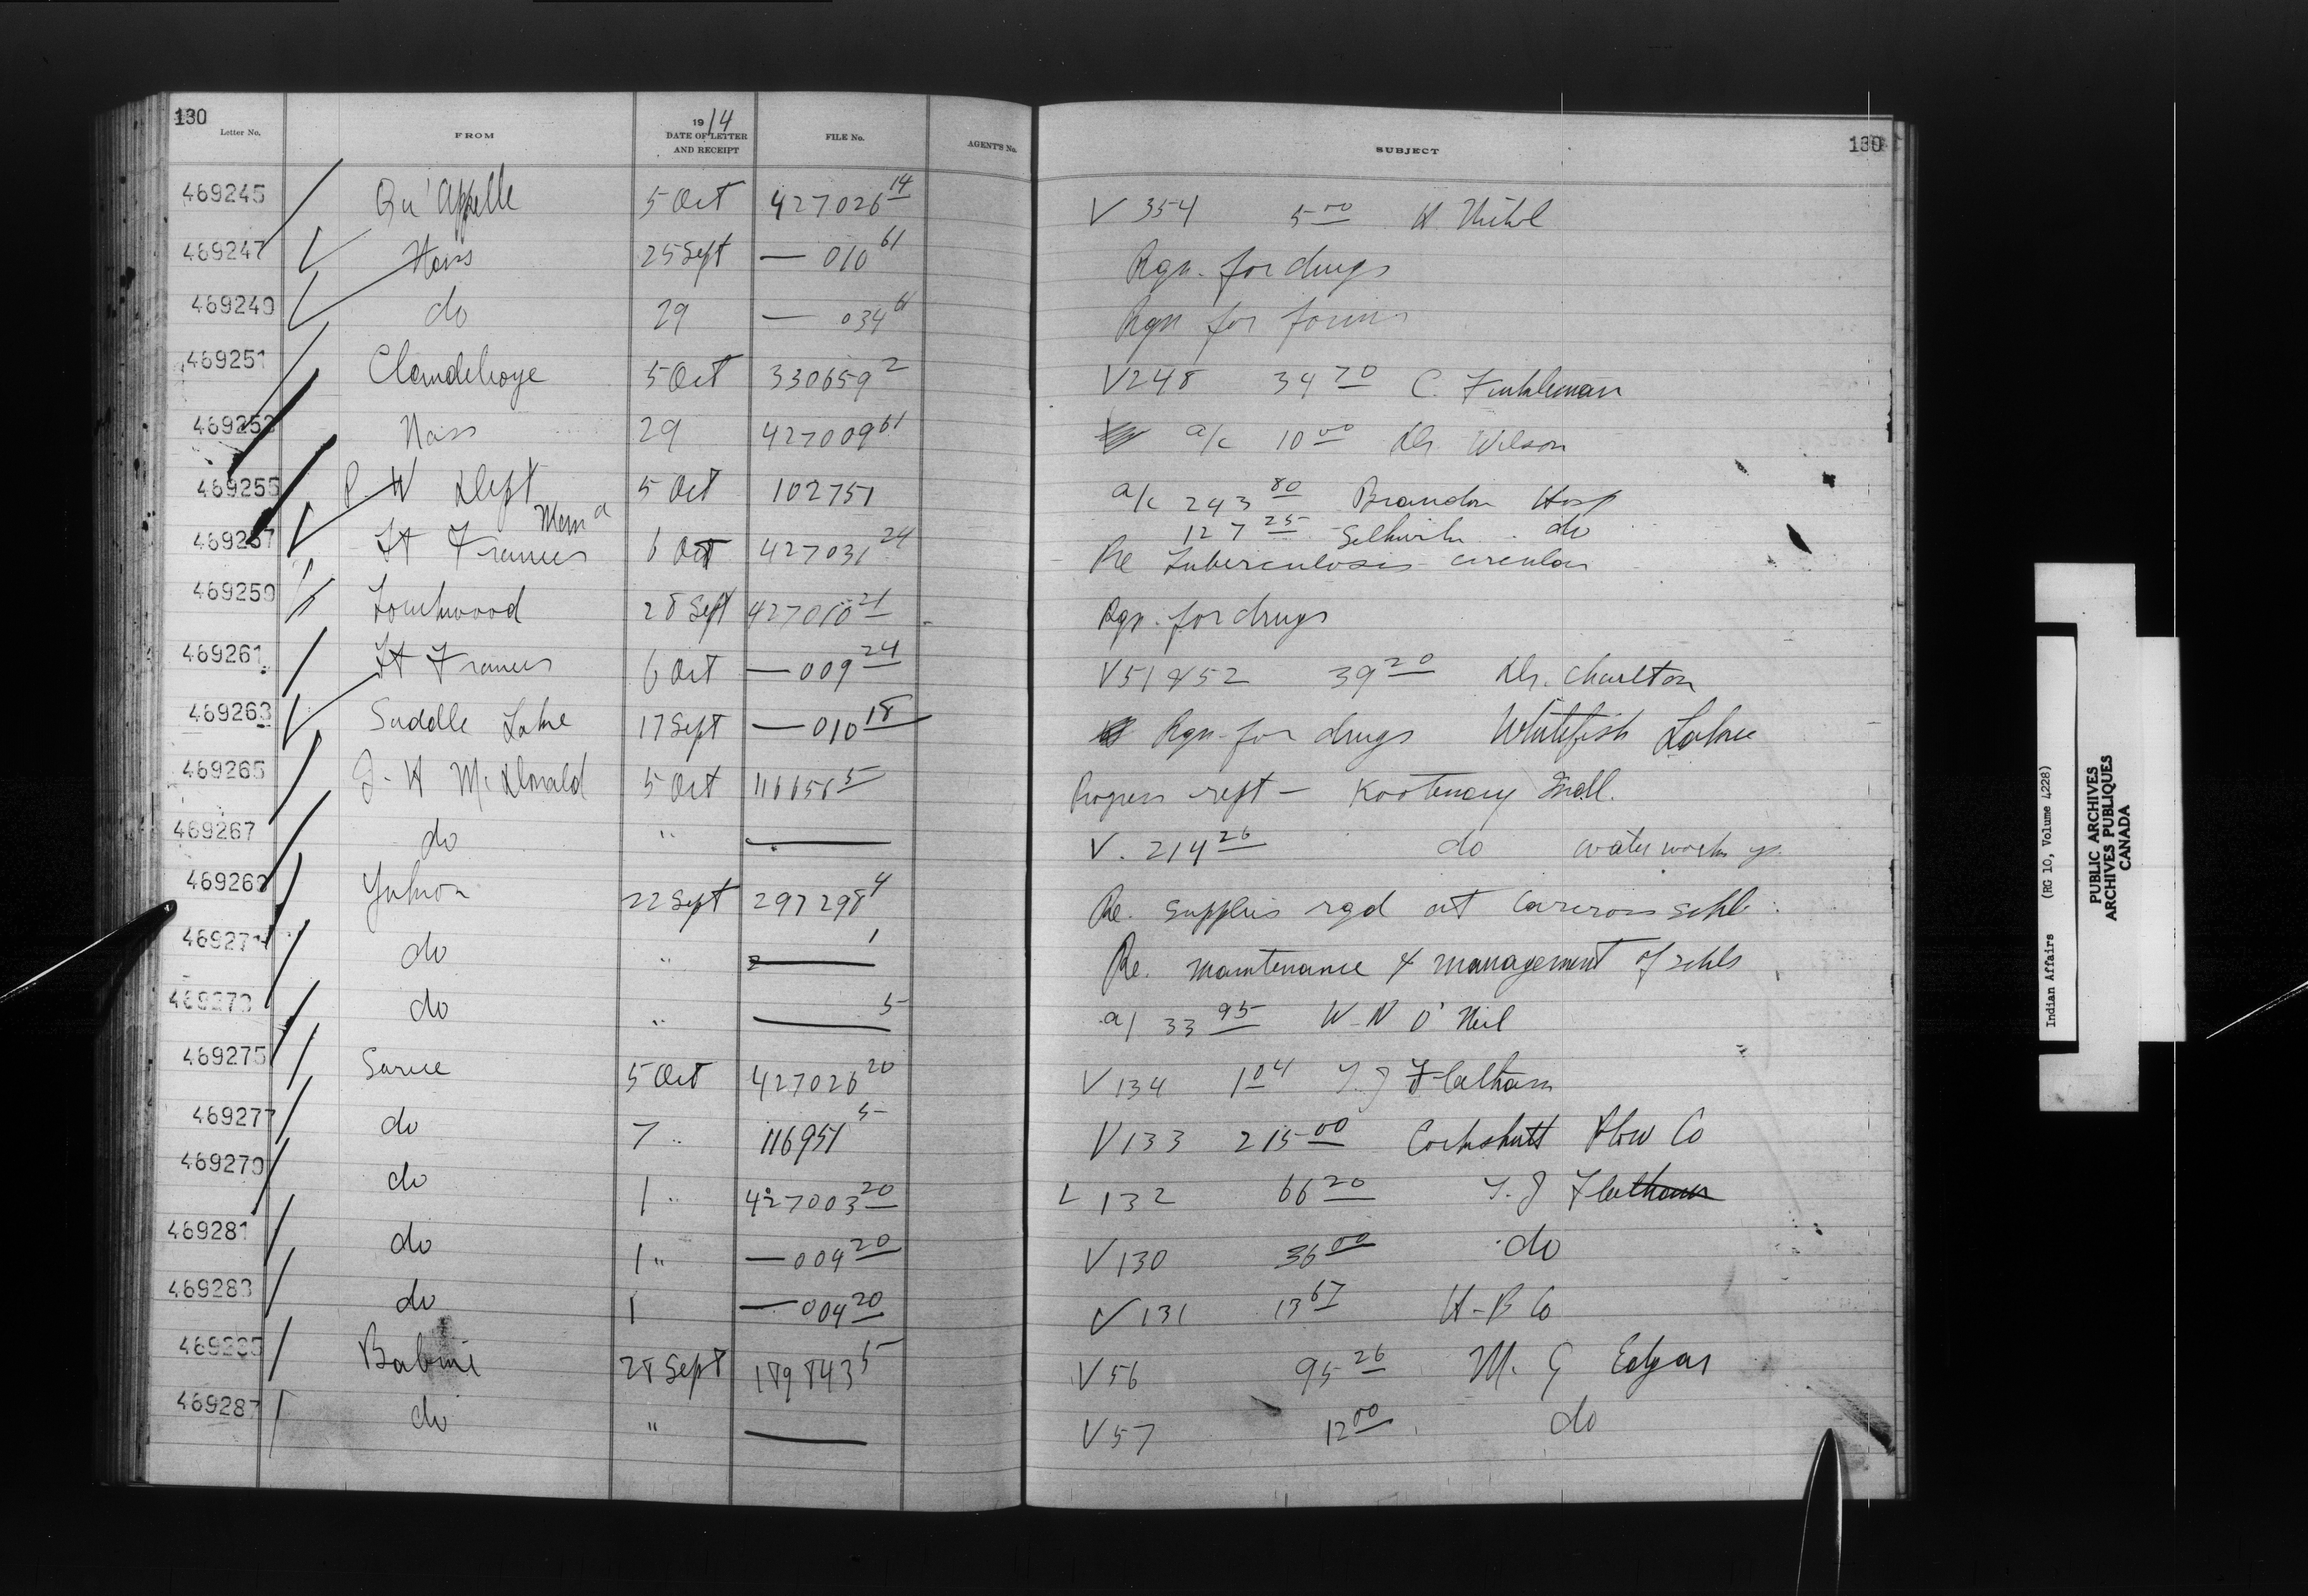 130
Letter No. FROM 1914 DATE OF LETTER AND RECEIPT FILE No. AGENT'S No. SUBJECT 130
469245 Qu'Appelle 5 Oct 427026 14 V 354 5 00 H
469247 Nass 25 Sept — 010 61 Rqn. for drugs
469249 do 29 — 034 61 Rqn for forms
469251 Clandeboye 5 Oct 330659 2 V 248 34 70 C. Finkleman
469253 Nass 29 427009 61 a/c 10 00 Dr. Wilson
469255 P W Dept 5 Oct 102751 a/c 243 80 Brandon Hosp
127 25 Selkirk do
469257 Ft Frances Mem a 6 Oct 427031 24 Re Tuberculosis circular
469259 Touchwood 28 Sept 427010 21 Rqn. for drugs
469261 Ft Frances 6 Oct — 009 24 V 51 & 52 39 20 Dr. Charlton
469263 Saddle Lake 17 Sept — 010 18 Rqn for drugs Whitefish Lake
469265 J. H McDonald 5 Oct 116656 5 Progress rept — Kootenay Indl.
469267 do " — V. 214 26 do waterworks
469269 Yukon 22 Sept 297298 4 Re. supplies rqd at Carcross schl.
469271 do " — 1 Re. maintenance & management of schls
469273 do " — 5 a/ 33 95 W. N O'Neil
469275 Sarcee 5 Oct 427026 20 V 134 1 04 T. J Flatham
469277 do 7 " 116951 5 V 133 215 00 Cockshutt Plow Co
469279 do 1 " 427003 20 V 132 66 20 T. J Flatham
469281 do 1 " — 009 20 V 130 36 00 do
469283 do 1 — 004 20 V 131 13 67 H-B Co
469285 Babine 28 Sept 189843 5 V 56 95 26 M. G Edgar
469287 do " — V 57 12 00 do
Indian Affairs (RG 10, Volume 4228)
PUBLIC ARCHIVES
ARCHIVES PUBLIQUES
CANADA